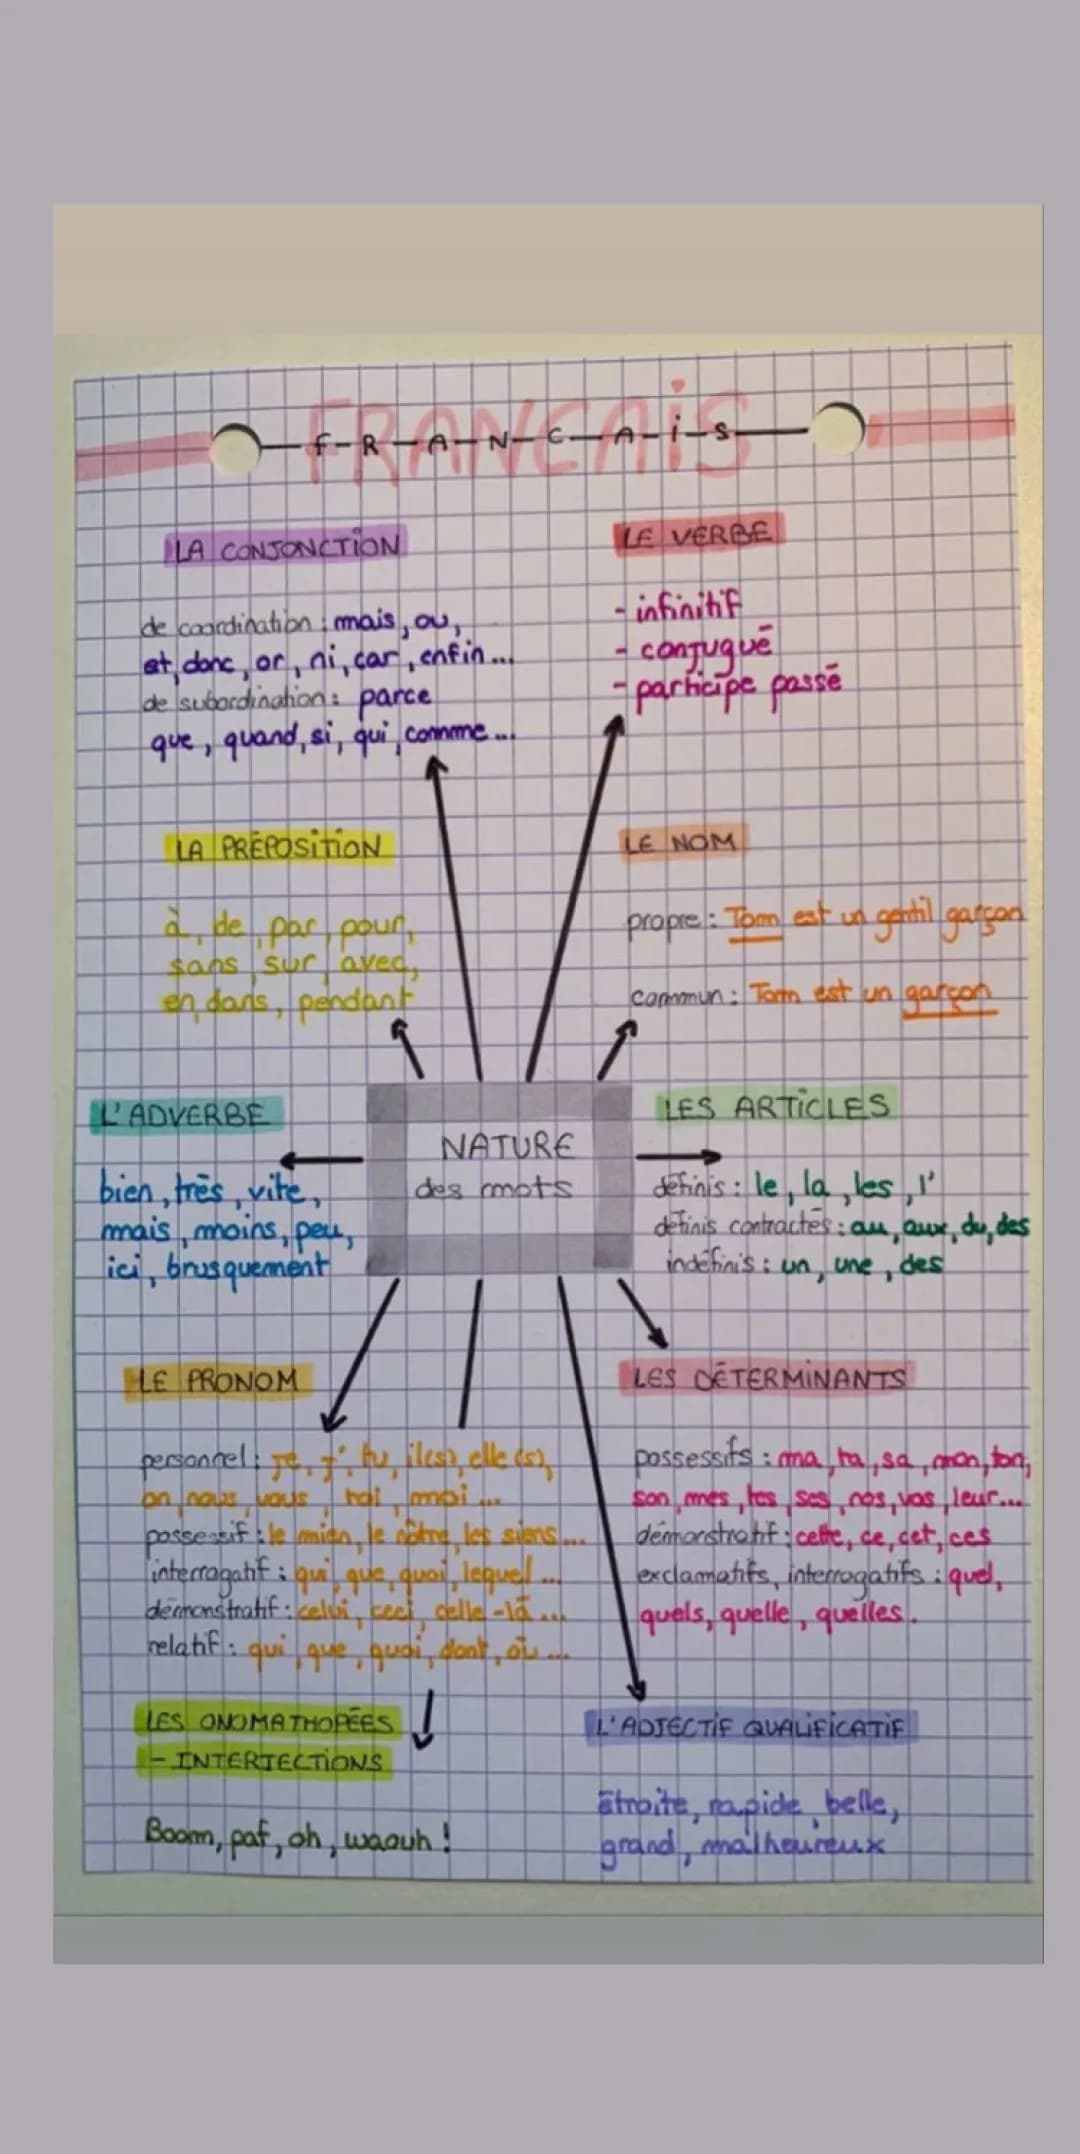 FRANCAIS
f-R-A-N-C-A-i-S
LA CONJONCTION
de coordination : mais, ou,
et, donc, or, ni, car, enfin...
de subordination : parce
que, quand, si, qui, comme...
LE VERBE
- infinitif
- conjugué
- participe passé
LA PRÉPOSITION
à, de, par, pour,
sans, sur, avec,
en, dans, pendant
LE NOM
propre : Tom est un gentil garçon
commun : Tom est un garçon
L'ADVERBE
bien, très, vite,
mais, moins, peu,
ici, brusquement
NATURE
des mots
LES ARTICLES
définis : le, la, les, l'
définis contractés : au, aux, du, des
indéfinis : un, une, des
LE PRONOM
personnel : je, j', tu, il(s), elle(s),
on, nous, vous, toi, moi...
possessif : le mien, le nôtre, les siens...
interrogatif : qui, que, quoi, lequel...
démonstratif : celui, ceci, celle-là...
relatif : qui, que, quoi, dont, où...
LES DÉTERMINANTS
possessifs : ma, ta, sa, mon, ton,
son, mes, tes, ses, nos, vos, leur...
démonstratif : cette, ce, cet, ces
exclamatifs, interrogatifs : quel,
quels, quelle, quelles.
LES ONOMATHOPÉES
- INTERJECTIONS
Boom, paf, oh, waouh !
L'ADJECTIF QUALIFICATIF
Étroite, rapide, belle,
grand, malheureux